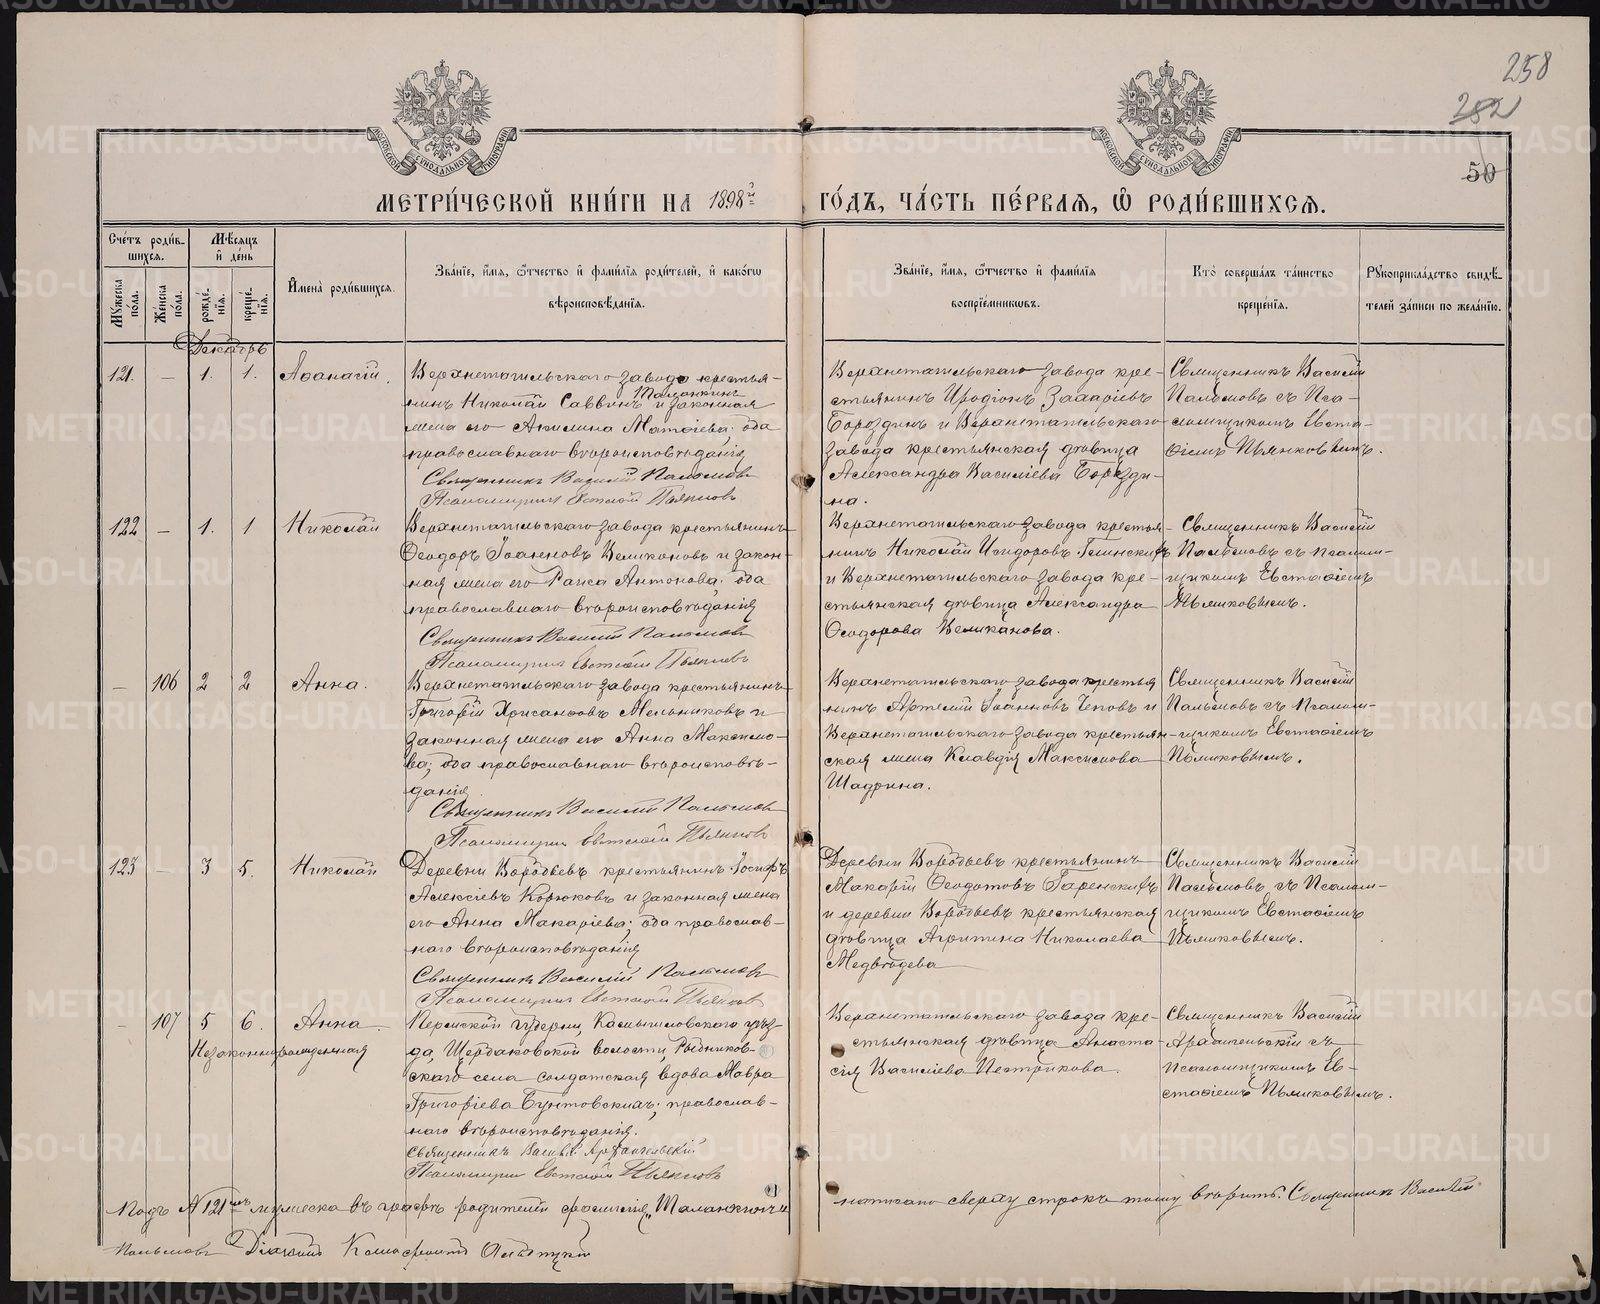 258
282
50
МЕТРИ́ЧЕСКОЙ КНИ́ГИ НА 1898й ГО́ДЪ, ЧА́СТЬ ПЕ́РВАЯ, Ѽ РОДИ́ВШИХСЯ.
Сче́тъ роди́вшихся.
Му́жеска по́ла.
Же́нска по́ла.
Мѣ́сяцъ и҆ де́нь
рожде́нїя.
креще́нїя.
И҆мена̀ роди́вшихся.
Зва́нїе, и҆́мя, ѻ҆́тчество и҆ фами́лїя роди́телей, и҆ како́гѡ
вѣроисповѣ́данїя.
Зва́нїе, и҆́мя, ѻ҆́тчество и҆ фами́лїя
воспрїе́мниковъ.
Кто̀ соверша́лъ та́инство
креще́нїя.
Рꙋкоприкла́дство свидѣ́-
телей за́писи по жела́нїю.
Декабрь
121. — 1. 1. Аѳанасій.
Верхнетагильскаго завода крестья-
нинъ Николай Саввинъ Таланкинъ и законная
жена его Акилина Матѳіева; оба
православнаго вѣроисповѣданія
Священникъ Василій Пальмовъ
Псаломщикъ Евстафій Пьянковъ
Верхнетагильскаго завода кре-
стьянинъ Иродіонъ Захаріевъ
Бороздинъ и Верхнетагильскаго
завода крестьянская дѣвица
Александра Василіева Борозди-
на.
Священникъ Василій
Пальмовъ съ Пса-
ломщикомъ Евста-
ѳіемъ Пьянковымъ.
122 — 1. 1 Николай
Верхнетагильскаго завода крестьянинъ
Ѳеодоръ Іоанновъ Великановъ и закон-
ная жена его Раиса Антонова; оба
православнаго вѣроисповѣданія
Священникъ Василій Пальмовъ
Псаломщикъ Евстафій Пьянковъ
Верхнетагильскаго завода крестья-
нинъ Николай Исидоровъ
и Верхнетагильскаго завода кре-
стьянская дѣвица Александра
Ѳеодорова Великанова.
Священникъ Василій
Пальмовъ съ псалом-
щикомъ Евстаѳіемъ
Пьянковымъ.
— 106 2 2 Анна.
Верхнетагильскаго завода крестьянинъ
Григорій Хрисанѳовъ Мельниковъ и
законная жена его Анна Максимо-
ва; оба православнаго вѣроисповѣ-
данія.
Священникъ Василій Пальмовъ
Псаломщикъ Евстафій Пьянковъ
Верхнетагильскаго завода крестья
нинъ Артемій Іоанновъ и
Верхнетагильскаго завода крестьян-
ская жена Клавдія Максимова
Шадрина.
Священникъ Василій
Пальмовъ съ псалом-
щикомъ Евстаѳіемъ
Пьянковымъ.
123 — 3 5. Николай
Деревни Воробьевъ крестьянинъ Іосифъ
Алексіевъ Корюковъ и законная жена
его Анна Макаріева; оба православ-
наго вѣроисповѣданія
Священникъ Василій Пальмовъ
Псаломщикъ Евстафій Пьянковъ
Деревни Воробьевъ крестьянинъ
Макарій Ѳеодотовъ Гаренскихъ
и деревни Воробьевъ крестьянская
дѣвица Агрипина Николаева
Медвѣдева
Священникъ Василій
Пальмовъ съ Псалом-
щикомъ Евстаѳіемъ
Пьянковымъ.
— 107 5 6. Анна.
Незаконнорожденная
Пермской губерніи, Камышловскаго уѣз-
да, Щербаковской волости, Рыбников-
скаго села солдатская вдова Мавра
Григоріева Бунтовскихъ; православ-
наго вѣроисповѣданія.
Священникъ Василій Архангельскій
Псаломщикъ Евстафій Пьянковъ
Верхнетагильскаго завода кре-
стьянская дѣвица Анаста-
сія Василіева Пестрикова.
Священникъ Василій
Архангельскій съ
псаломщикомъ Ев-
стаѳіемъ Пьянковымъ.
Подъ № 121мъ мужеска въ графѣ родителей фамилія „Таланкинъ“ написано сверху строкъ тому вѣрить. Священникъ Василій
Пальмовъ Діаконъ